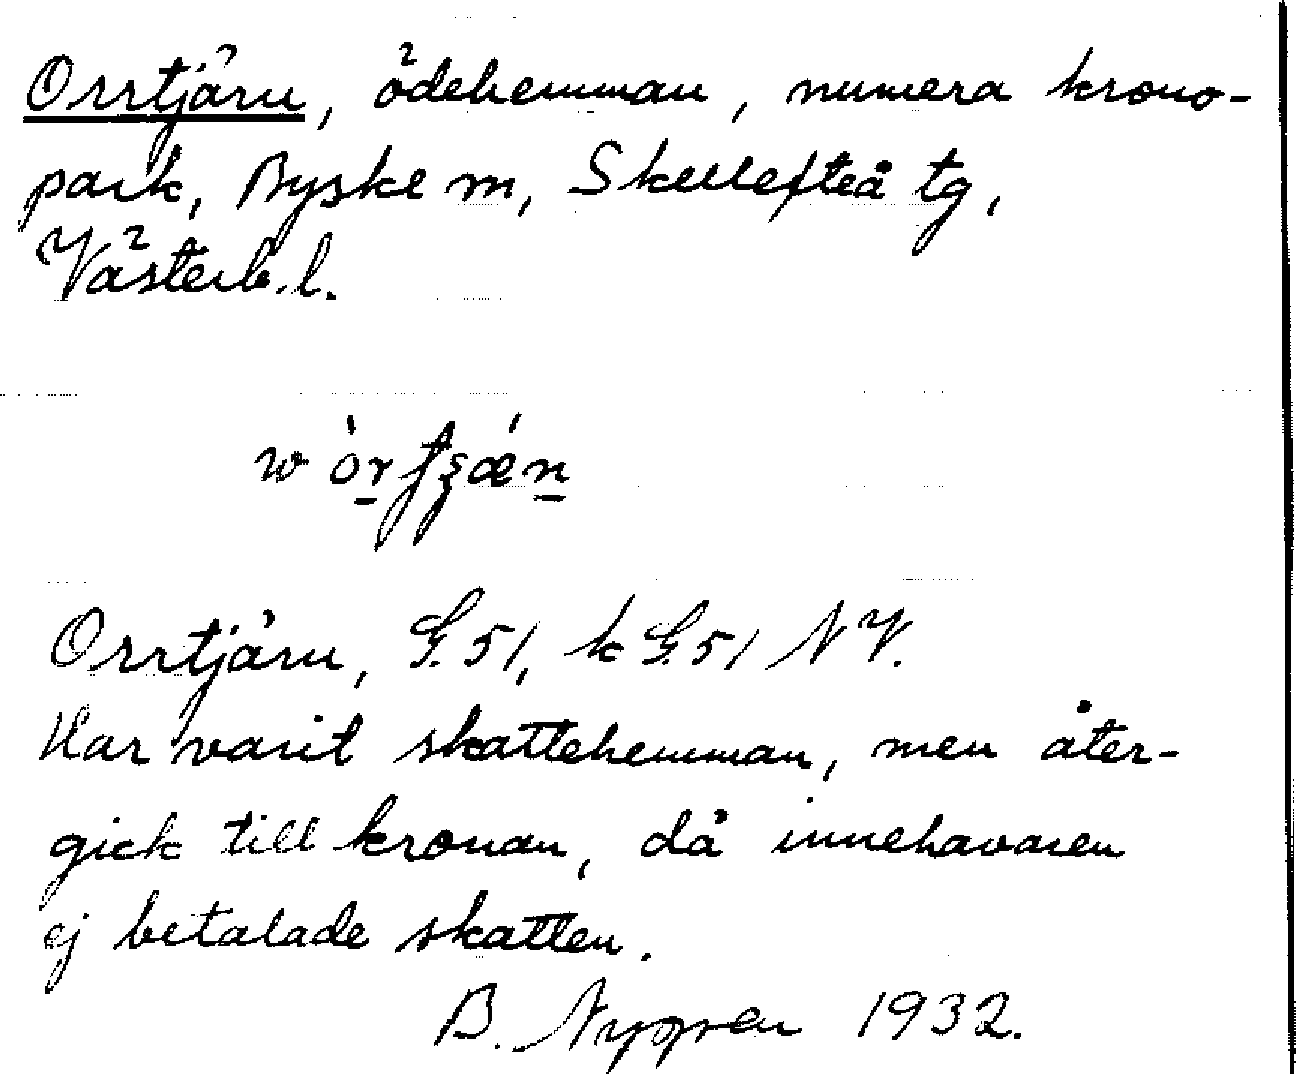 Orrtjärn, ödehemman, numera krono-
park, Byske m, Skellefteå tg,
Västerb. l.
Orrtjärn, G. 51, k G. 51 N V.
Har varit skattehemman, men åter-
gick till kronan, då innehavaren
ej betalade skatten.
B. Nygren 1932.